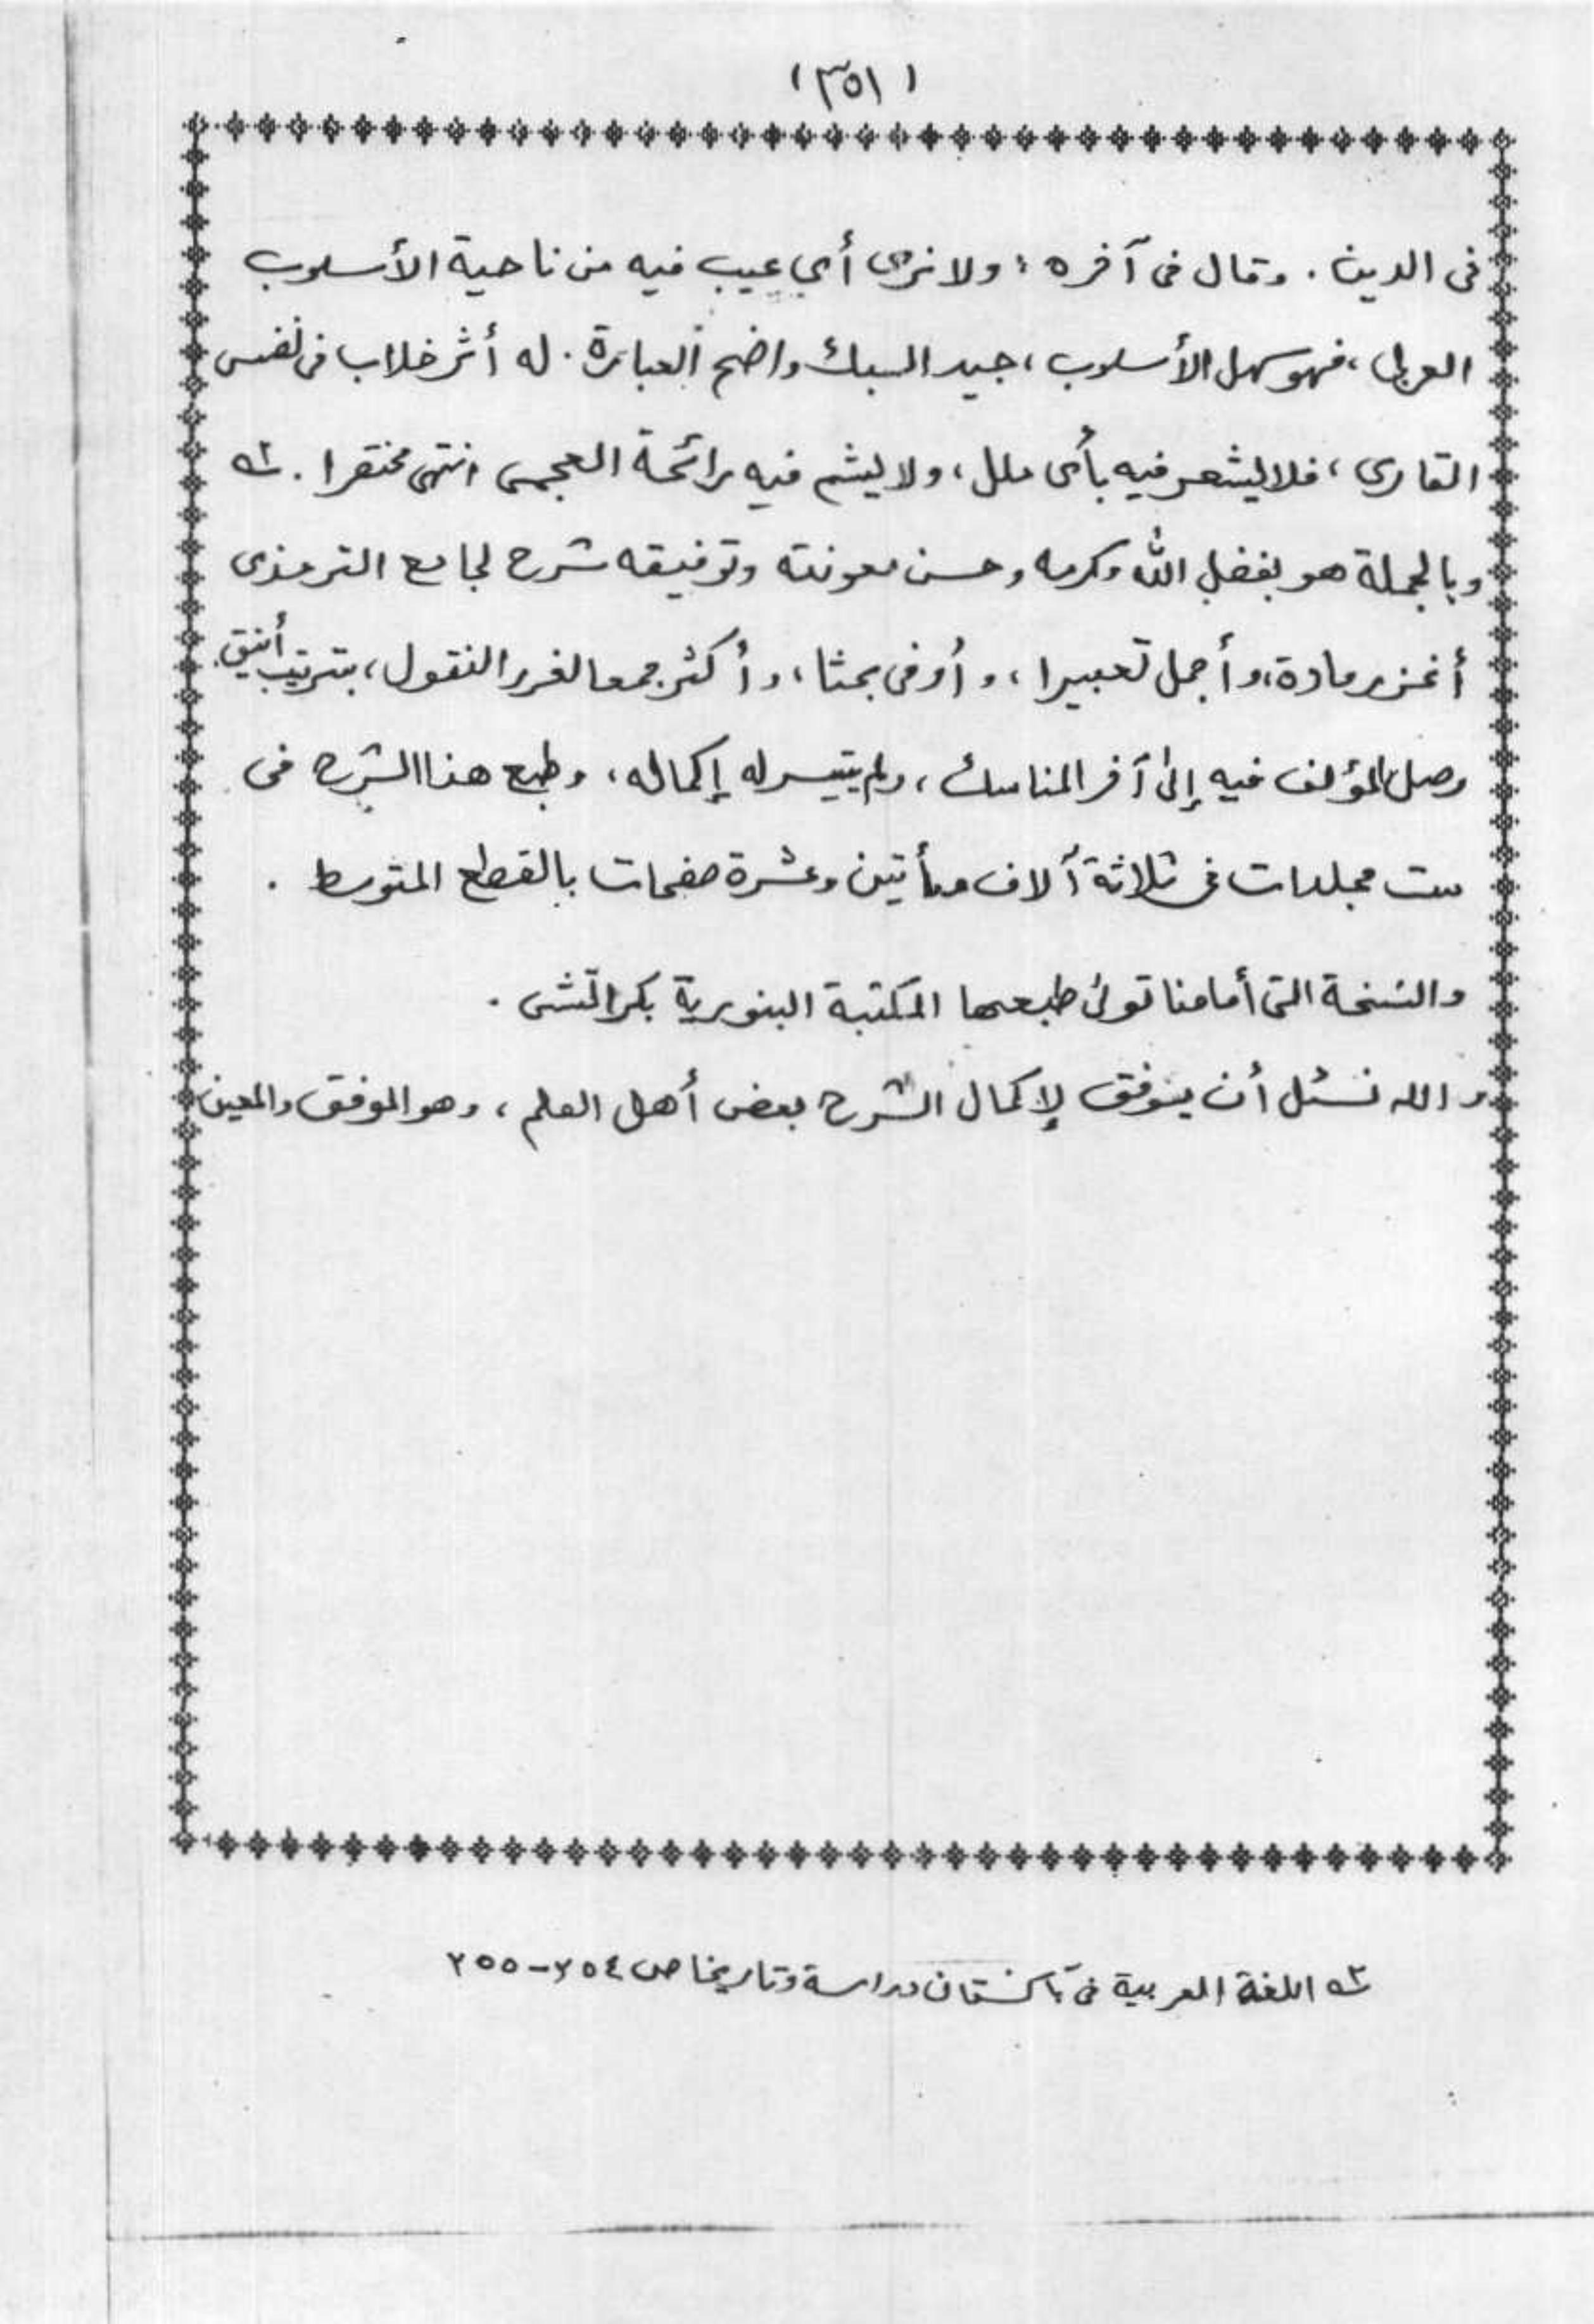 (٣٥١)
فى الدين . وقال فى آخره : ولا نرى أي عيب فيه من ناحية الأسلوب
العربى ، فهو سهل الأسلوب ، جيد السبك واضح العبارة . له أثر خلاب فى نفس
القارى ، فلا يشعر فيه بأى ملل ، ولا يشم فيه رائحة العجمى انتهى مختصرا .
وبالجملة هو بفضل الله وكرمه وحسن معونته وتوفيقه شرح لجامع الترمذى
أغزر مادة، وأجمل تعبيرا ، و أوفى بحثا ، و أكثر جمعا لغرر النقول ، بترتيب أنيق .
وصل المؤلف فيه إلى آخر المناسك ، ولم يتيسر له إكماله ، وطبع هذا الشرح فى
ست مجلدات فى ثلاثة آلاف ومأتين وعشرة صفحات بالقطع المتوسط .
والنسخة التى أمامنا تولى طبعها المكتبة البنورية بكراتشى .
و الله نسئل أن يوفق لإكمال الشرح بعض أهل العلم ، وهو الموفق والمعين
اللغة العربية فى باكستان دراسة وتاريخا ص ٢٥٤-٢٥٥